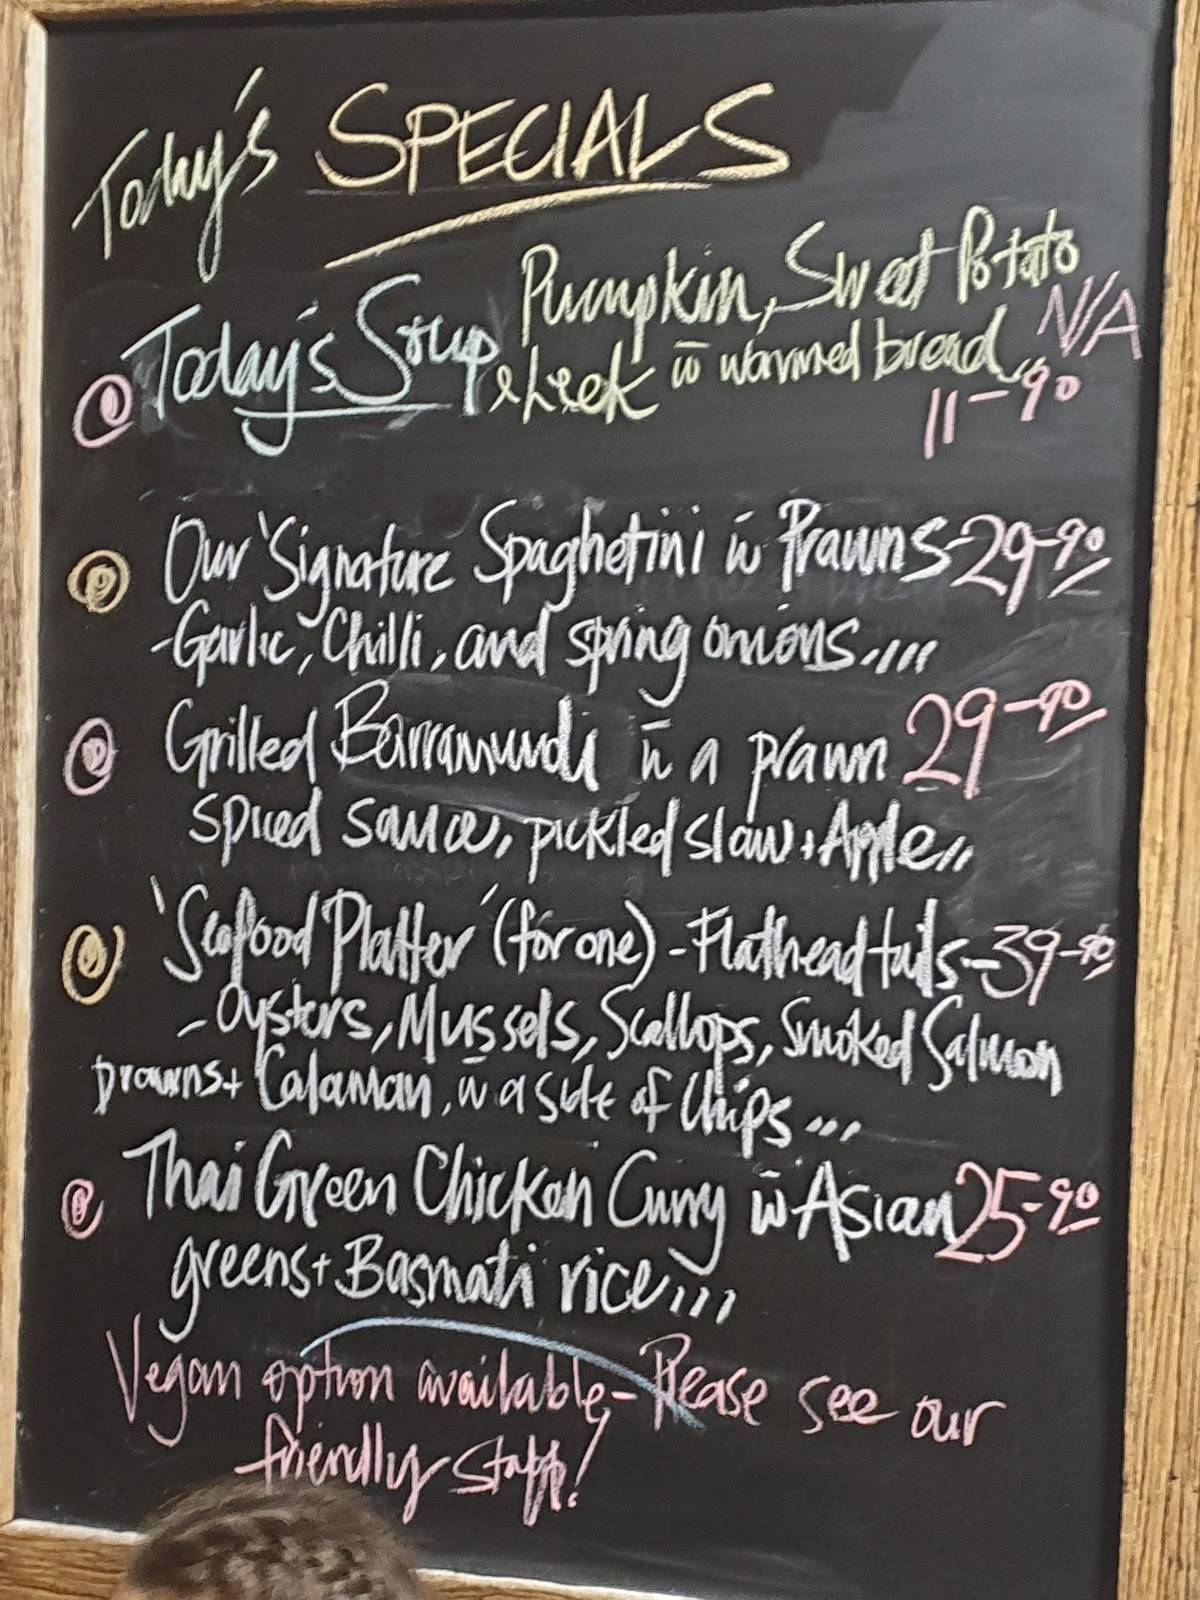 Today's SPECIALS
Today's Soup
Pumpkin, Sweet Potato
& Leek w warmed bread...
N/A
11-90
Our 'Signature Spaghetini w Prawns - 29-90
- Garlic, Chilli, and spring onions....
Grilled Barramundi w a prawn 29-90
spiced sauce, pickled slaw + Apple..
'Seafood Platter' (for one) - Flathead tails - 39-90
- Oysters, Mussels, Scallops, Smoked Salmon
prawns + Calamari, w a side of Chips...
Thai Green Chicken Curry w Asian 25-90
greens + Basmati rice...
Vegan option available - Please see our
friendly staff!